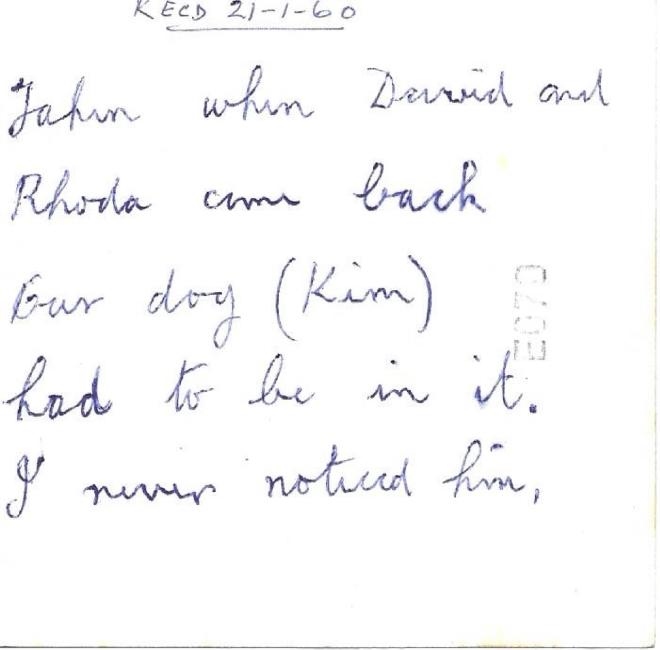 RECD 21-1-60
Taken when David and
Rhoda came back
Our dog (Kim)
had to be in it.
I never noticed him,
E070